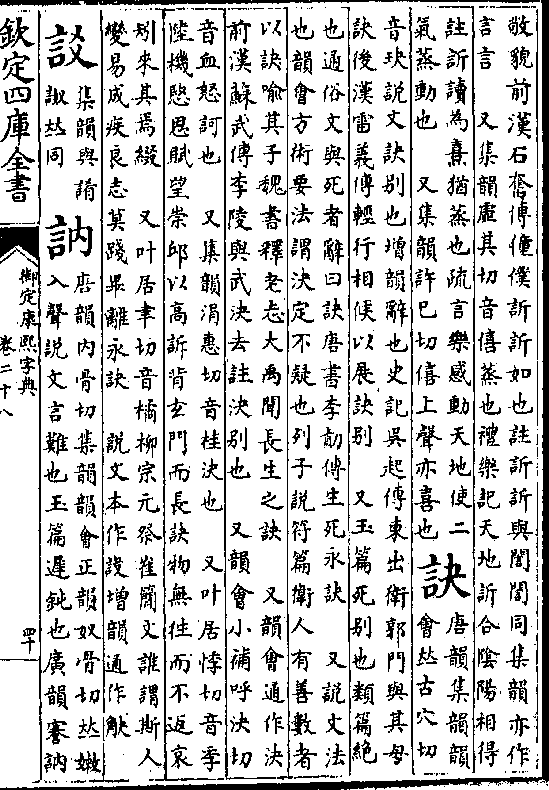 敬貌前漢石奮傳僮僕訢訢如也註訢訢與誾誾同集韻亦作
言言　又集韻虛其切音僖蒸也禮樂記天地訢合陰陽相得
註訢讀為熹猶蒸也疏言樂感動天地使二
氣蒸動也　又集韻許已切僖上聲亦喜也
訣
唐韻集韻韻
會𠀤古穴切
音玦說文訣別也增韻辭也史記吳起傳東出衛郭門與其母
訣後漢雷義傳輕行相候以展訣別　又玉篇死别也類篇絶
也通俗文與死者辭曰訣唐書李勣傳生死永訣　又說文法
也韻會方術要法謂決定不疑也列子說符篇衛人有善數者
以訣喻其子魏書釋老志大禹聞長生之訣　又韻會通作決
前漢蘇武傳李陵與武決去註決别也　又韻會小補呼決切
音血怒訶也　又集韻涓惠切音桂決也　又叶居悸切音季
陸機愍思賦望崇邱以高訴背玄門而長訣物無往而不返哀
𠛬來其焉綴　又叶居聿切音橘柳宗元祭崔簡文誰謂斯人
變易成疾良志莫踐㫺離永訣　說文本作䛎增韻通作觖
𧥺
集韻與請
諏𠀤同
訥
唐韻内骨切集韻韻會正韻奴骨切𠀤嫩
入聲說文言難也玉篇遲鈍也廣韻謇訥
欽定四庫全書
御定康熙字典
卷二十八
四十